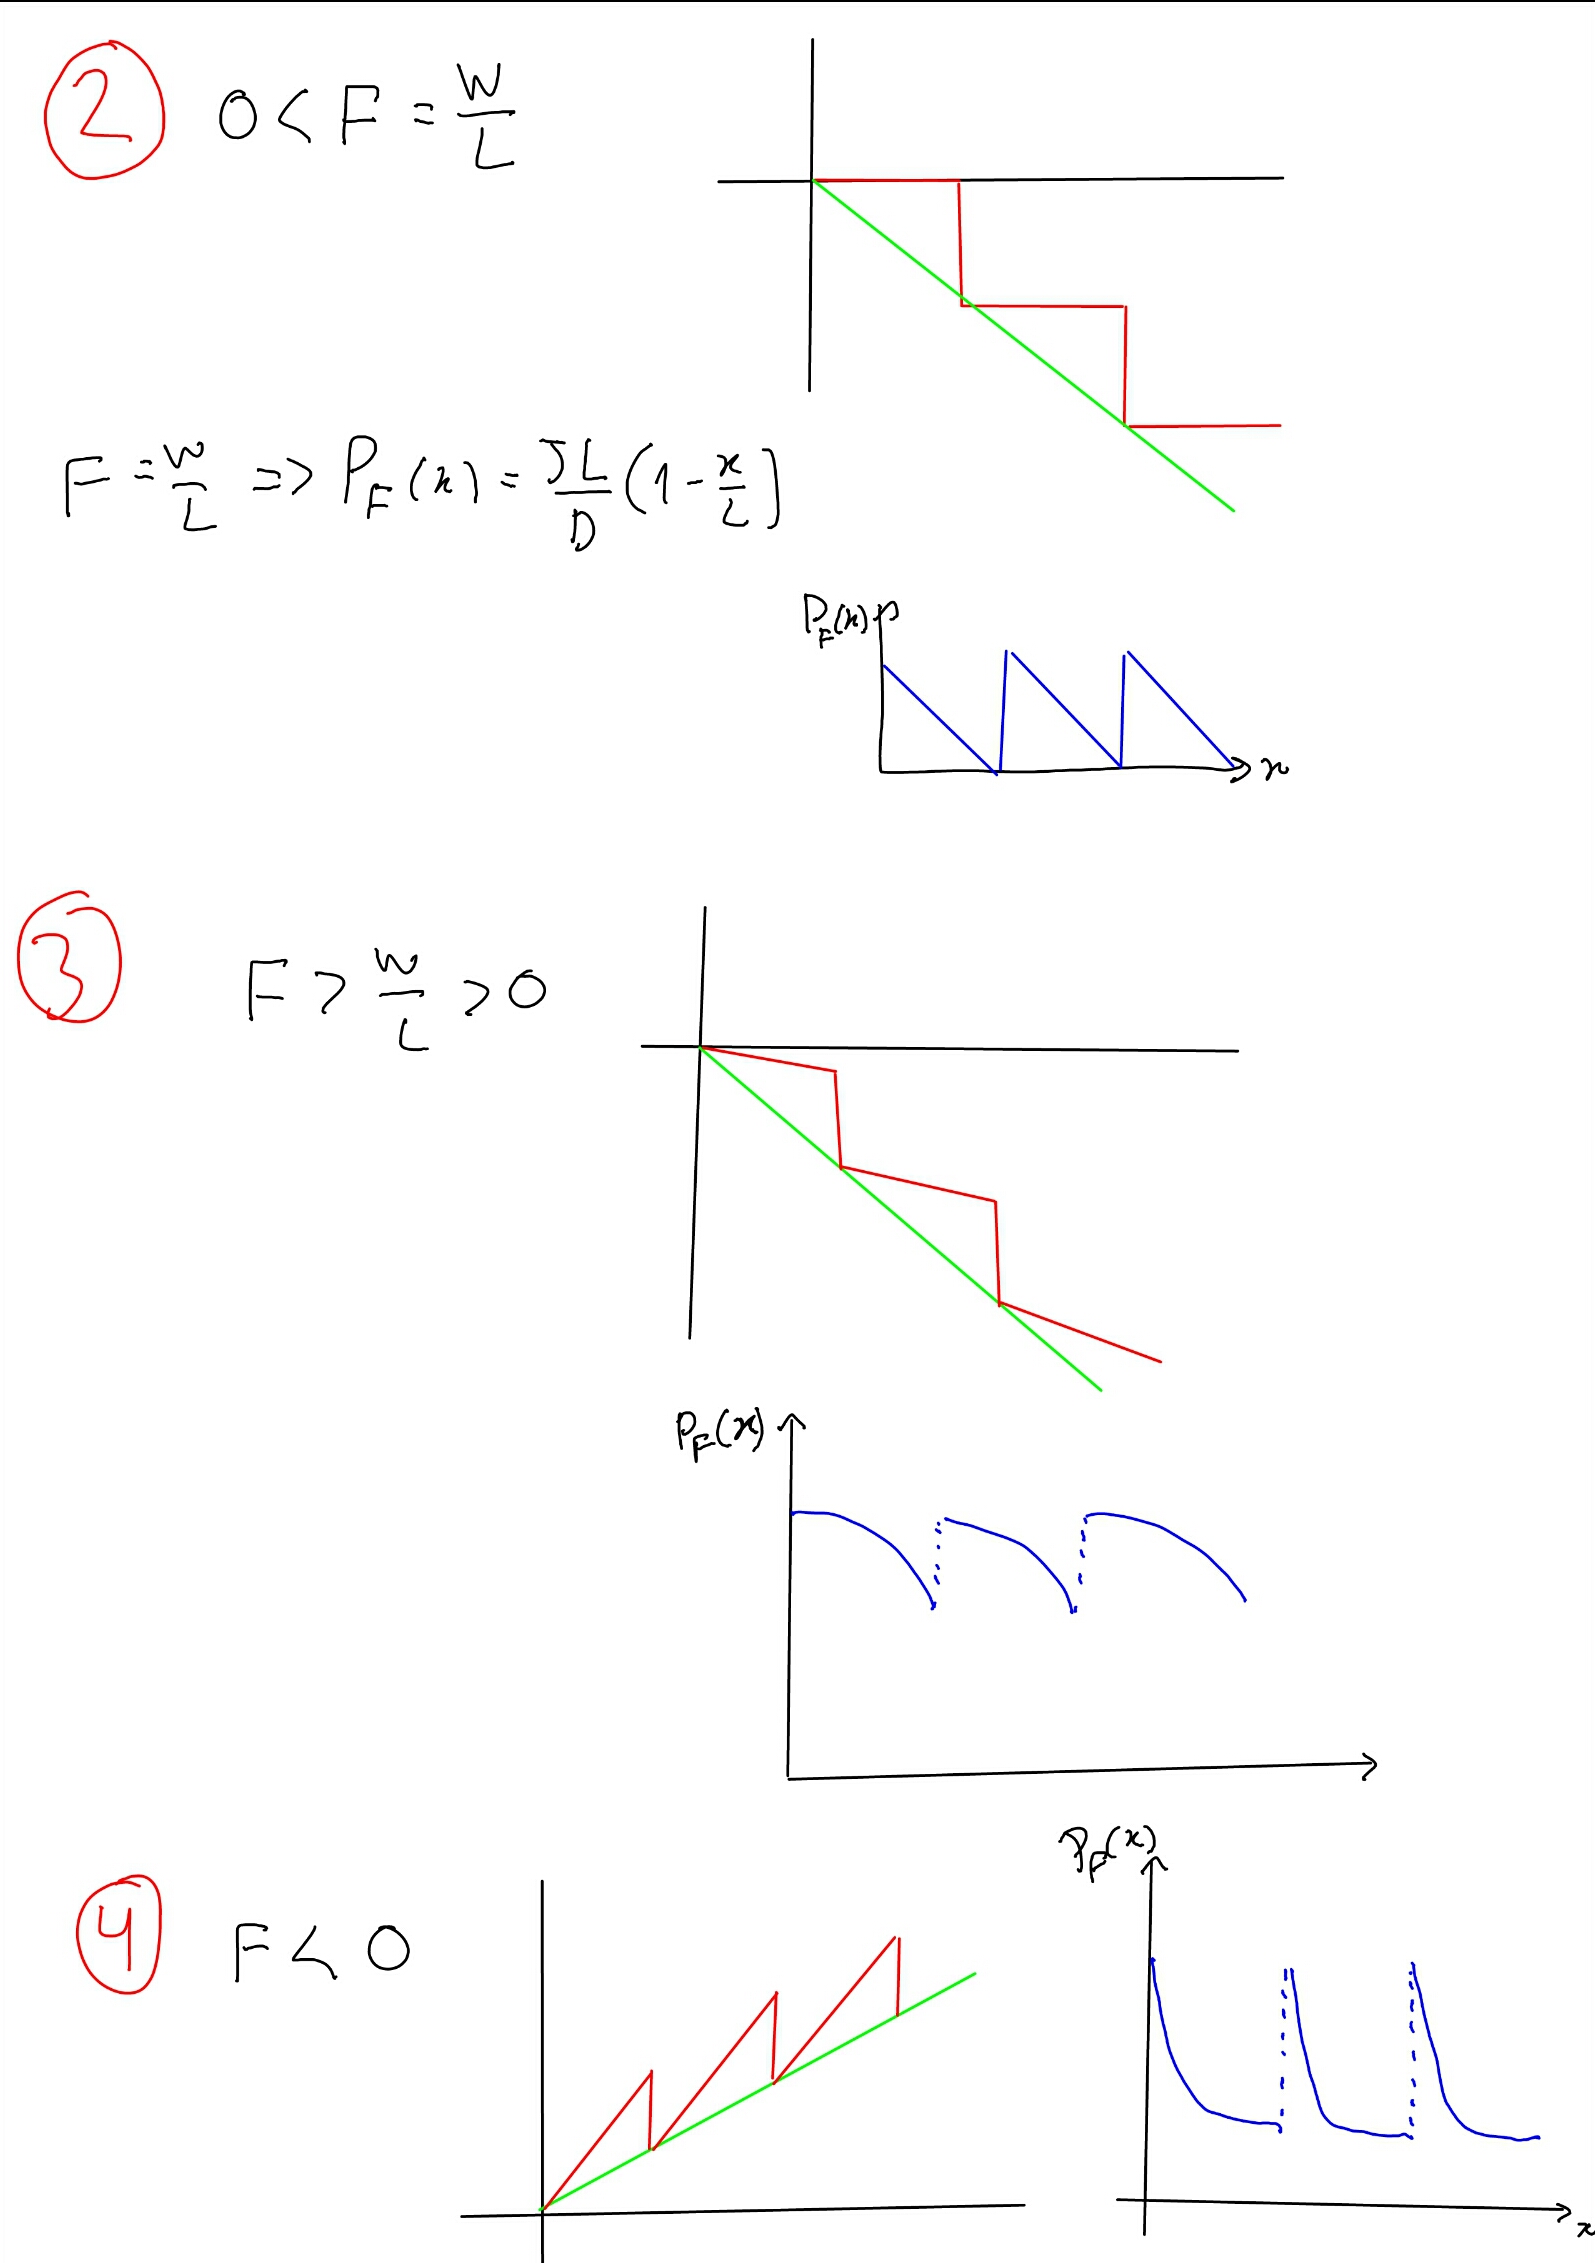 2 0 < F = W/L
F = W/L => P_F(x) = JL/D (1 - x/L)
P_F(x)
x
3 F > W/L > 0
P_F(x)
P_F(x)
4 F < 0
x